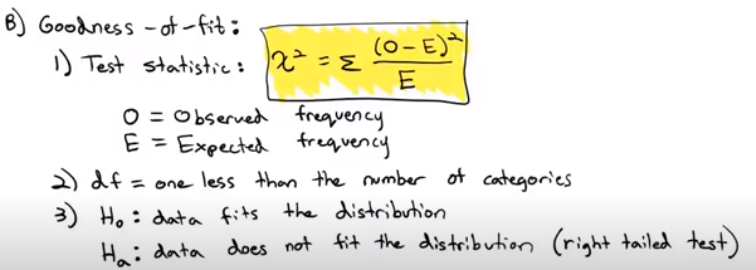 B) Goodness-of-fit:
1) Test statistic: χ² = Σ (O-E)²/E
O = Observed frequency
E = Expected frequency
2) df = one less than the number of categories
3) H₀: data fits the distribution
Hₐ: data does not fit the distribution (right tailed test)